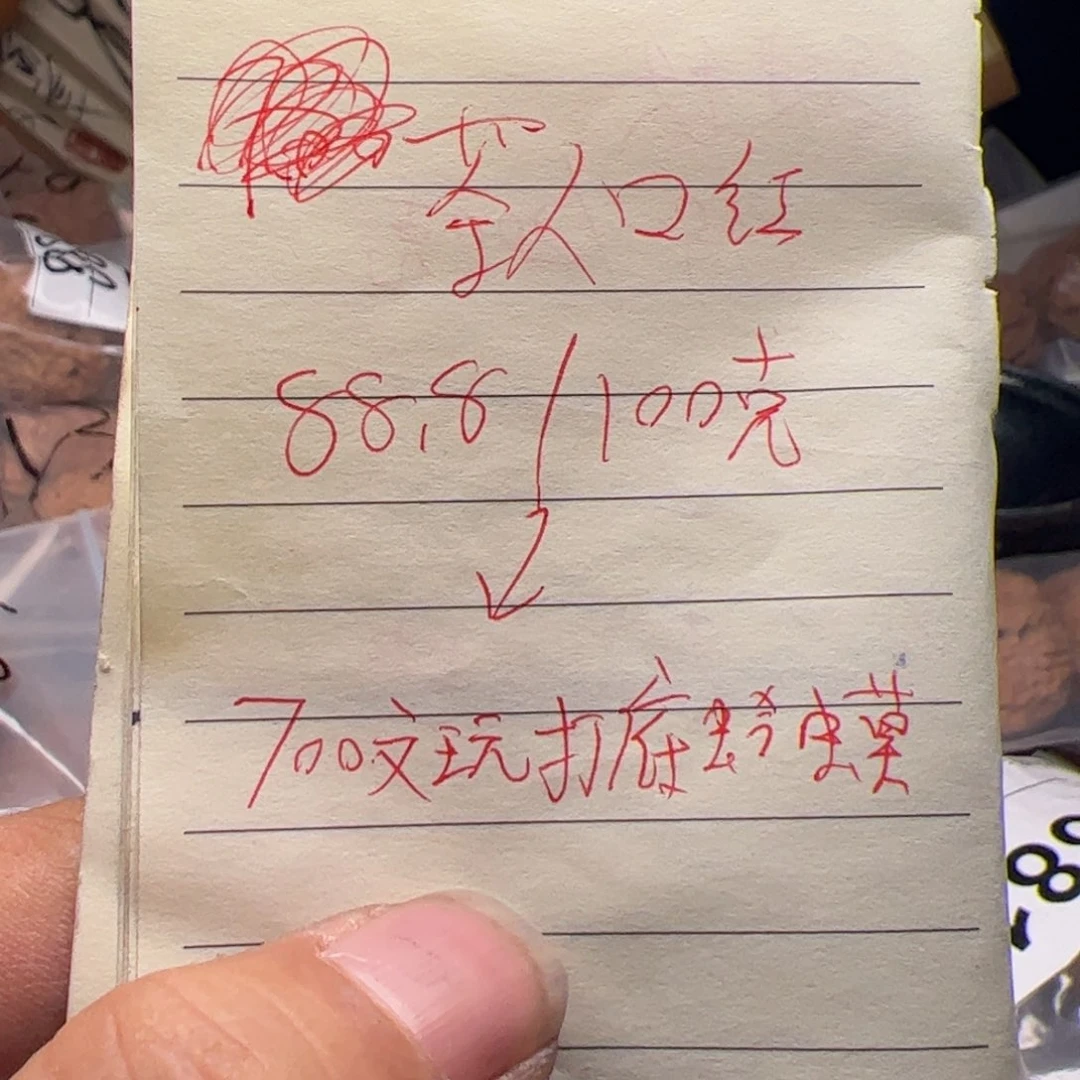 人口红
88.8/100克
700文玩打底蛤蟆